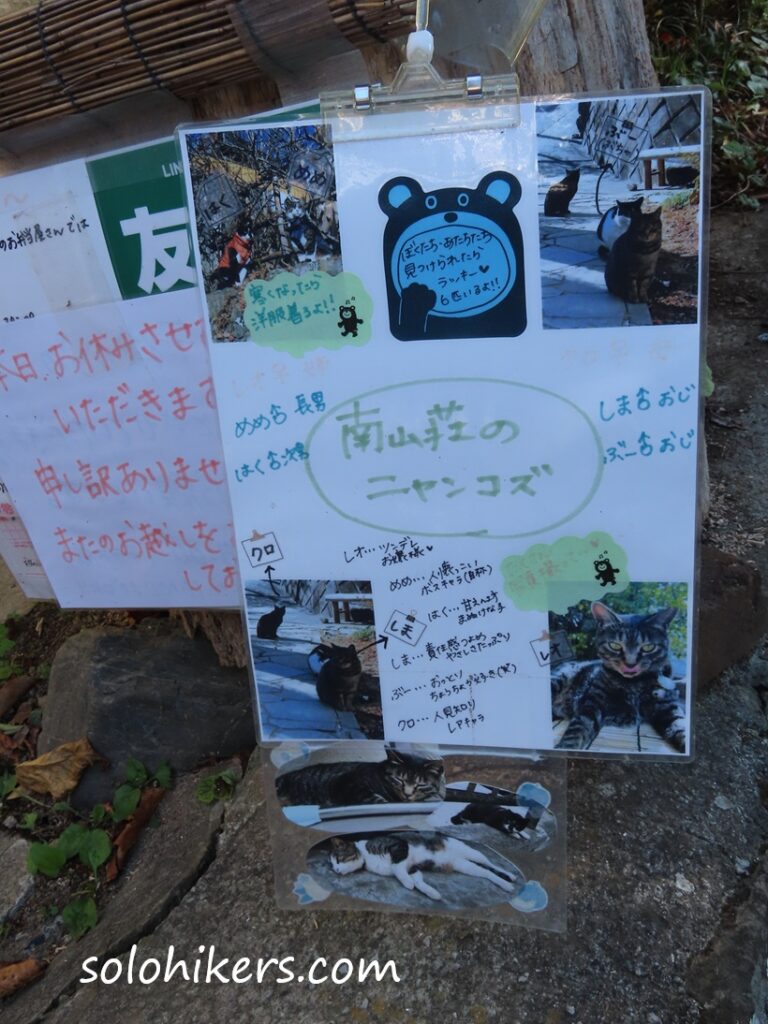 LIN
友
のお弁当屋さんでは
本日、お休みさせ
いただきます
申し訳ありませ
またのお越しを
してお
はく
めめ
寒くなったら
洋服着るよ!!
ぼくたち・あたちたち
見つけられたら
ラッキー♥
6匹いるよ!!
ぶー
めめ♂ 長男
はく♂ 次男
南山荘の
ニャンコズ
しま♂ おじ
ぶー♂ おじ
クロ
しま
レオ
レオ…ツンデレ
お嬢様♥
めめ…人懐っこい
ボスキャラ(自称)
はく…甘えんぼ
まぬけな子
しま…責任感つよめ
やさしさたっぷり
ぶー…おっとり
ちょうちょが好き(笑)
クロ…人見知り
レアキャラ
solohikers.com